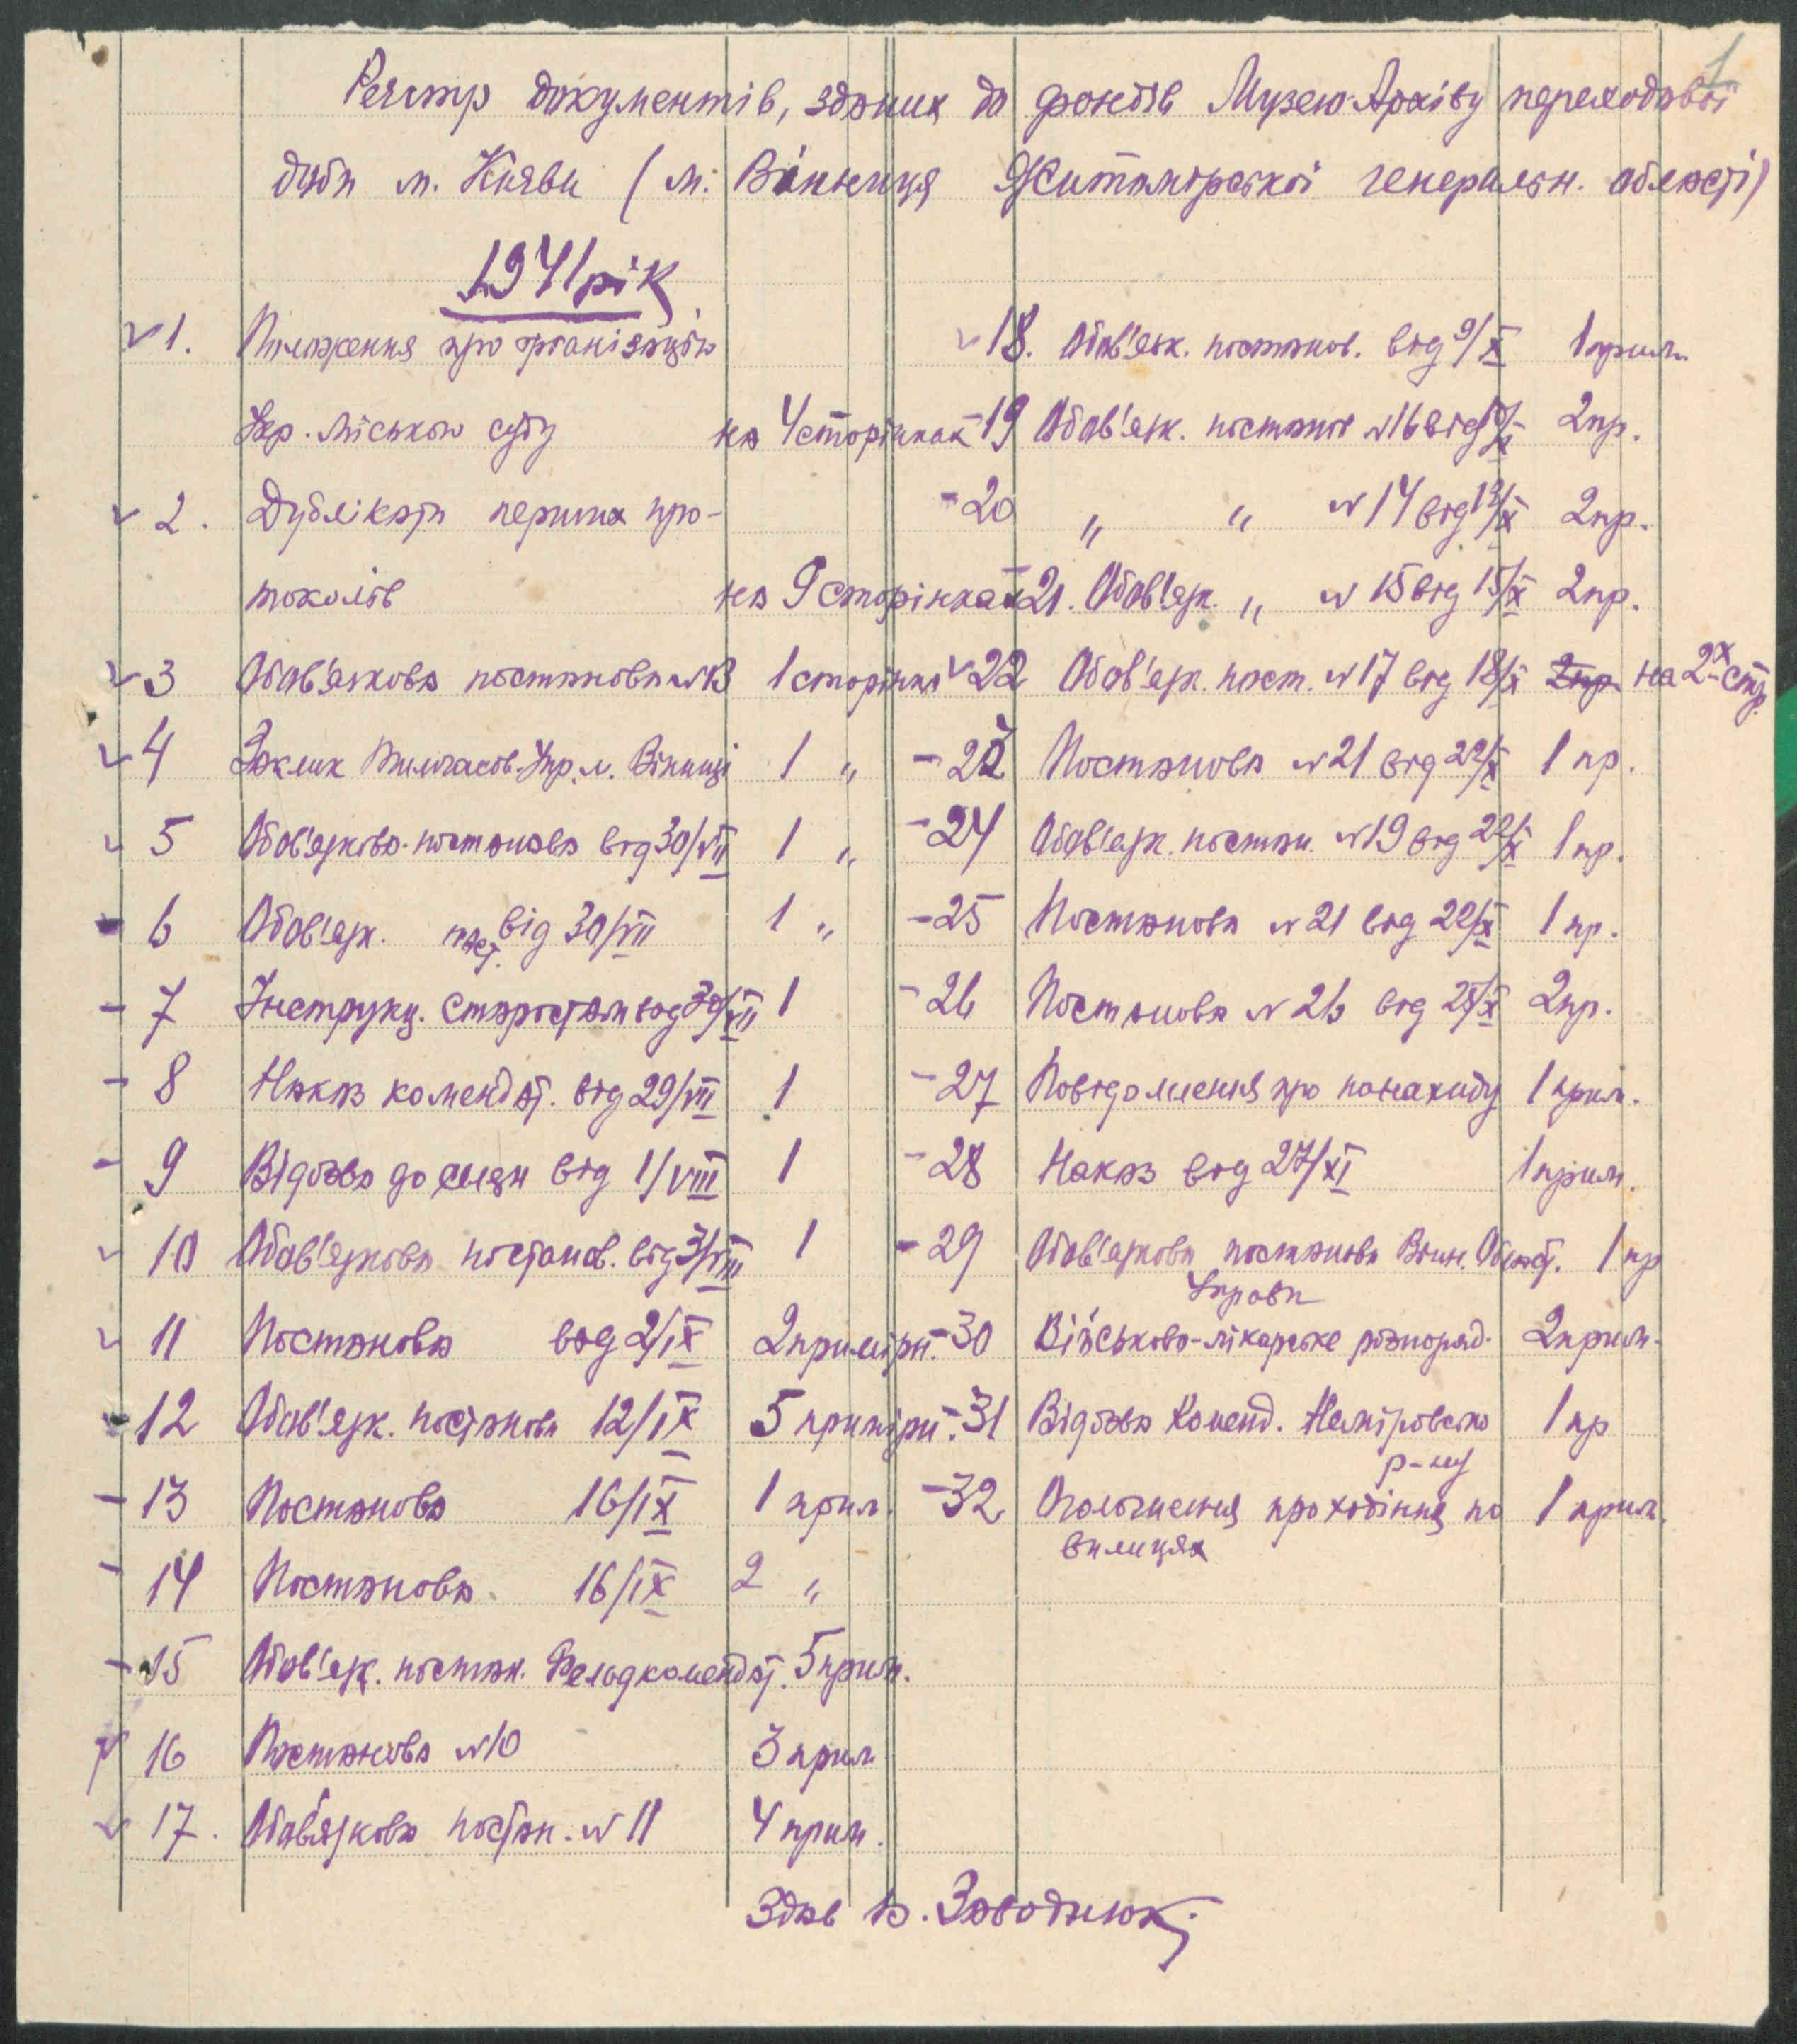 1
Реєстр документів, зданих до фондів Музею-Архіву переходової
доби м. Києва (м. Вінниця Житомирської генеральн. області)
1941 рік
1. Положення про організацію
Укр. міського суду на 4 сторінках
2. Дублікати перших про-
токолів на 9 сторінках
3 Обов'язкова постанова №13 1 сторінка
4 Заклик Тимчасов. Упр. м. Вінниці 1 „
5 Обов'язкова постанова від 30/VII 1 „
6 Обов'язк. пост. від 30/VII 1 „
7 Інструкц. старостам від 30/VII 1
8 Наказ комендат. від 29/VIII 1
9 Відозва до селян від 1/VIII 1
10 Обов'язкова постанов. від 3/VIII 1
11 Постанова від 2/IX 2 примірн.
12 Обов'язк. постанова 12/IX 5 примірн.
13 Постанова 16/IX 1 прим.
14 Постанова 16/IX 2 „
15 Обов'язк. постан. Фельдкомендат. 5 прим.
16 Постанова №10 3 прим
17. Обов'язкова постан. №11 4 прим.
18. Обов'язк. постанов. від 9/X 1 прим.
19 Обов'язк. постанов №16 від 2 пр.
20 „ „ №14 від 13/X 2 пр.
21. Обов'язк. „ №15 від 15/X 2 пр.
22 Обов'язк. пост. №17 від 18/X 2 пр. на 2-х стр.
23 Постанова №21 від 22/X 1 пр.
24 Обов'язк. постан. №19 від 22/X 1 пр.
25 Постанова №21 від 22/X 1 пр.
26 Постанова №26 від 25/X 2 пр.
27 Повідомлення про панахиду 1 прим.
28 Наказ від 27/XI 1 прим.
29 Обов'язкова постанова Вінн. Област. 1 пр
Управи
30 Військово-лікарське розпоряд. 2 прим.
31 Відозва Коменд. Немирівського 1 пр
р-ну
32 Оголошення про ходіння по 1 прим.
вулицях
Здав В. Заводнюк